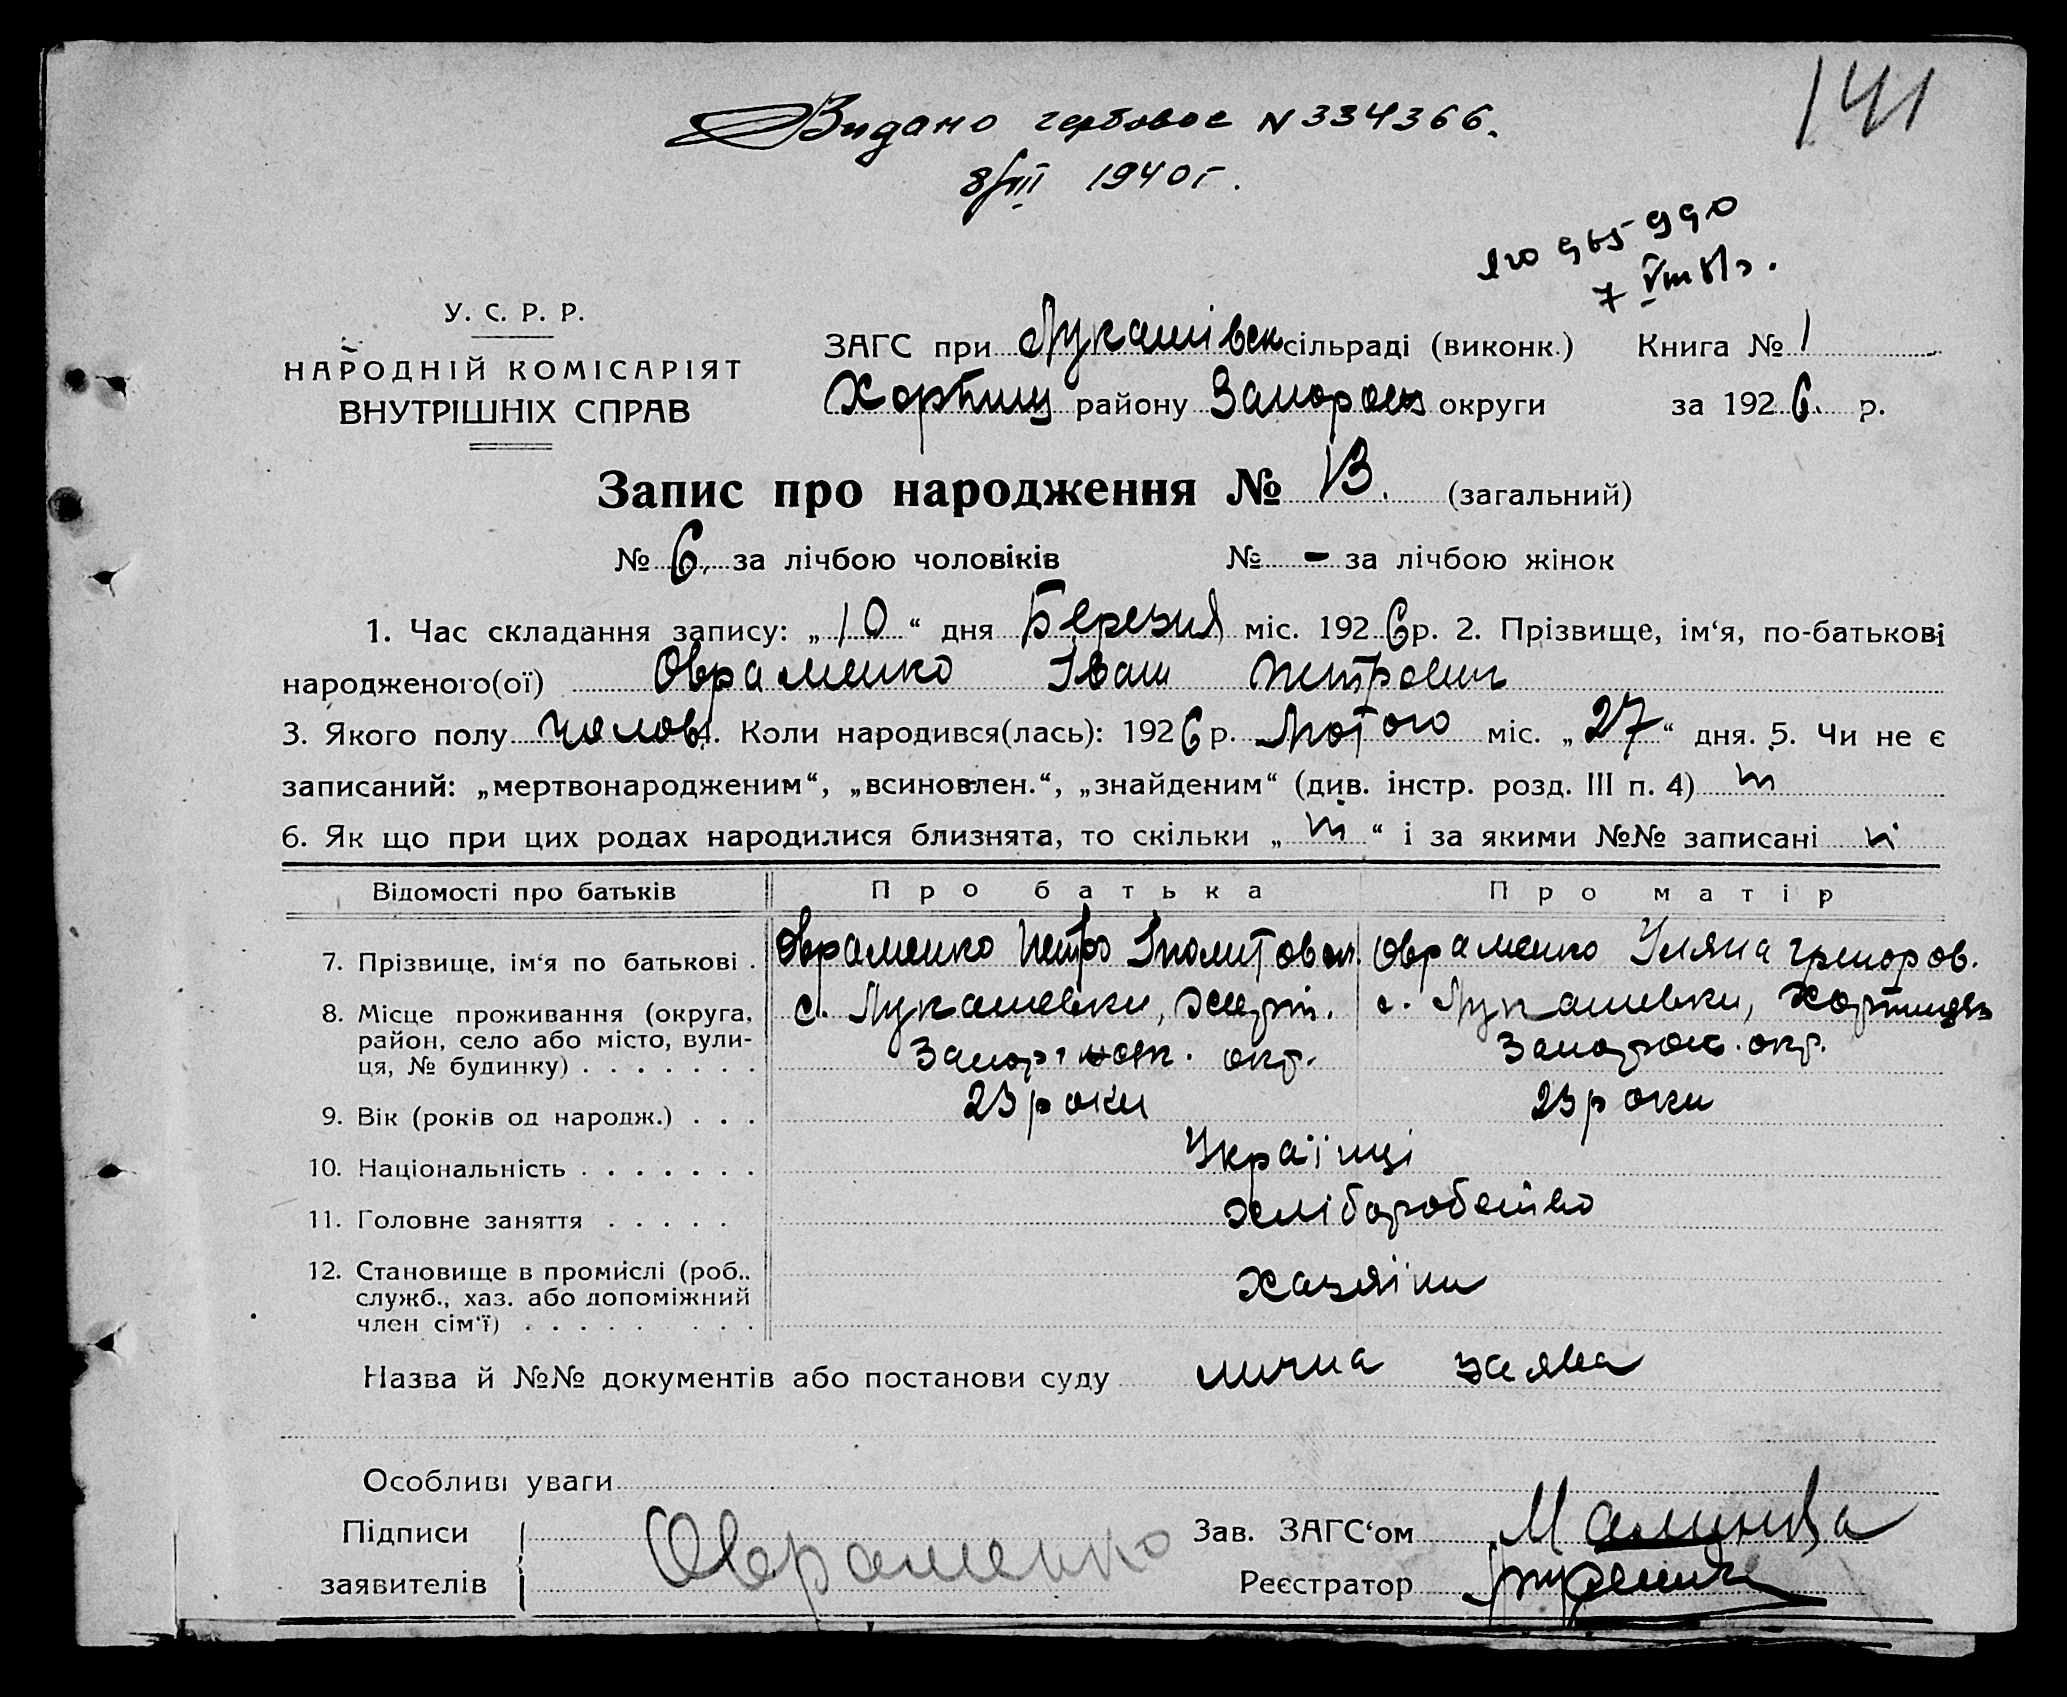 141
Видано гербовое N 334366.
8/III 1940 г.
965990
7 VIII
У. С. Р. Р.
НАРОДНІЙ КОМІСАРІЯТ
ВНУТРІШНІХ СПРАВ
ЗАГС при Лукашівск сільраді (виконк.) Книга № 1
Хортиц району Запороз округи за 1926. р.
Запис про народження № 13. (загальний)
№ 6. за лічбою чоловіків № - за лічбою жінок
1. Час складання запису: „10“ дня Березня міс. 1926 р. 2. Прізвище, ім‘я, по-батькові
народженого(ої) Овраменко Іван Петрович
3. Якого полу чолов. 4. Коли народився(лась): 1926 р. Лютого міс. „27“ дня. 5. Чи не є
записаний: „мертвонародженим“, „всиновлен.“, „знайденим“ (див. інстр. розд. III п. 4) ні
6. Як що при цих родах народилися близнята, то скільки „ні“ і за якими №№ записані ні
Відомості про батьків Про батька Про матір
7. Прізвище, ім‘я по батькові . Овраменко Петро Іполитович. Овраменко Уляна Григоров.
8. Місце проживання (округа, с. Лукашевки, Хорт. с. Лукашевки, Хортицьк
район, село або місто, вули-
ця, № будинку) . . . . . . . Запор. окр. Запороз. окр.
9. Вік (років од народж.) . . . 23 роки 23 роки
10. Національність . . . . . . . Українці
11. Головне заняття . . . . . хліборобство
12. Становище в промислі (роб.. хазяїни
служб., хаз. або допоміжний
член сім‘ї) . . . . . . . .
Назва й №№ документів або постанови суду лична заява
Особливі уваги
Підписи Овраменко Зав. ЗАГС‘ом
заявителів Реєстратор